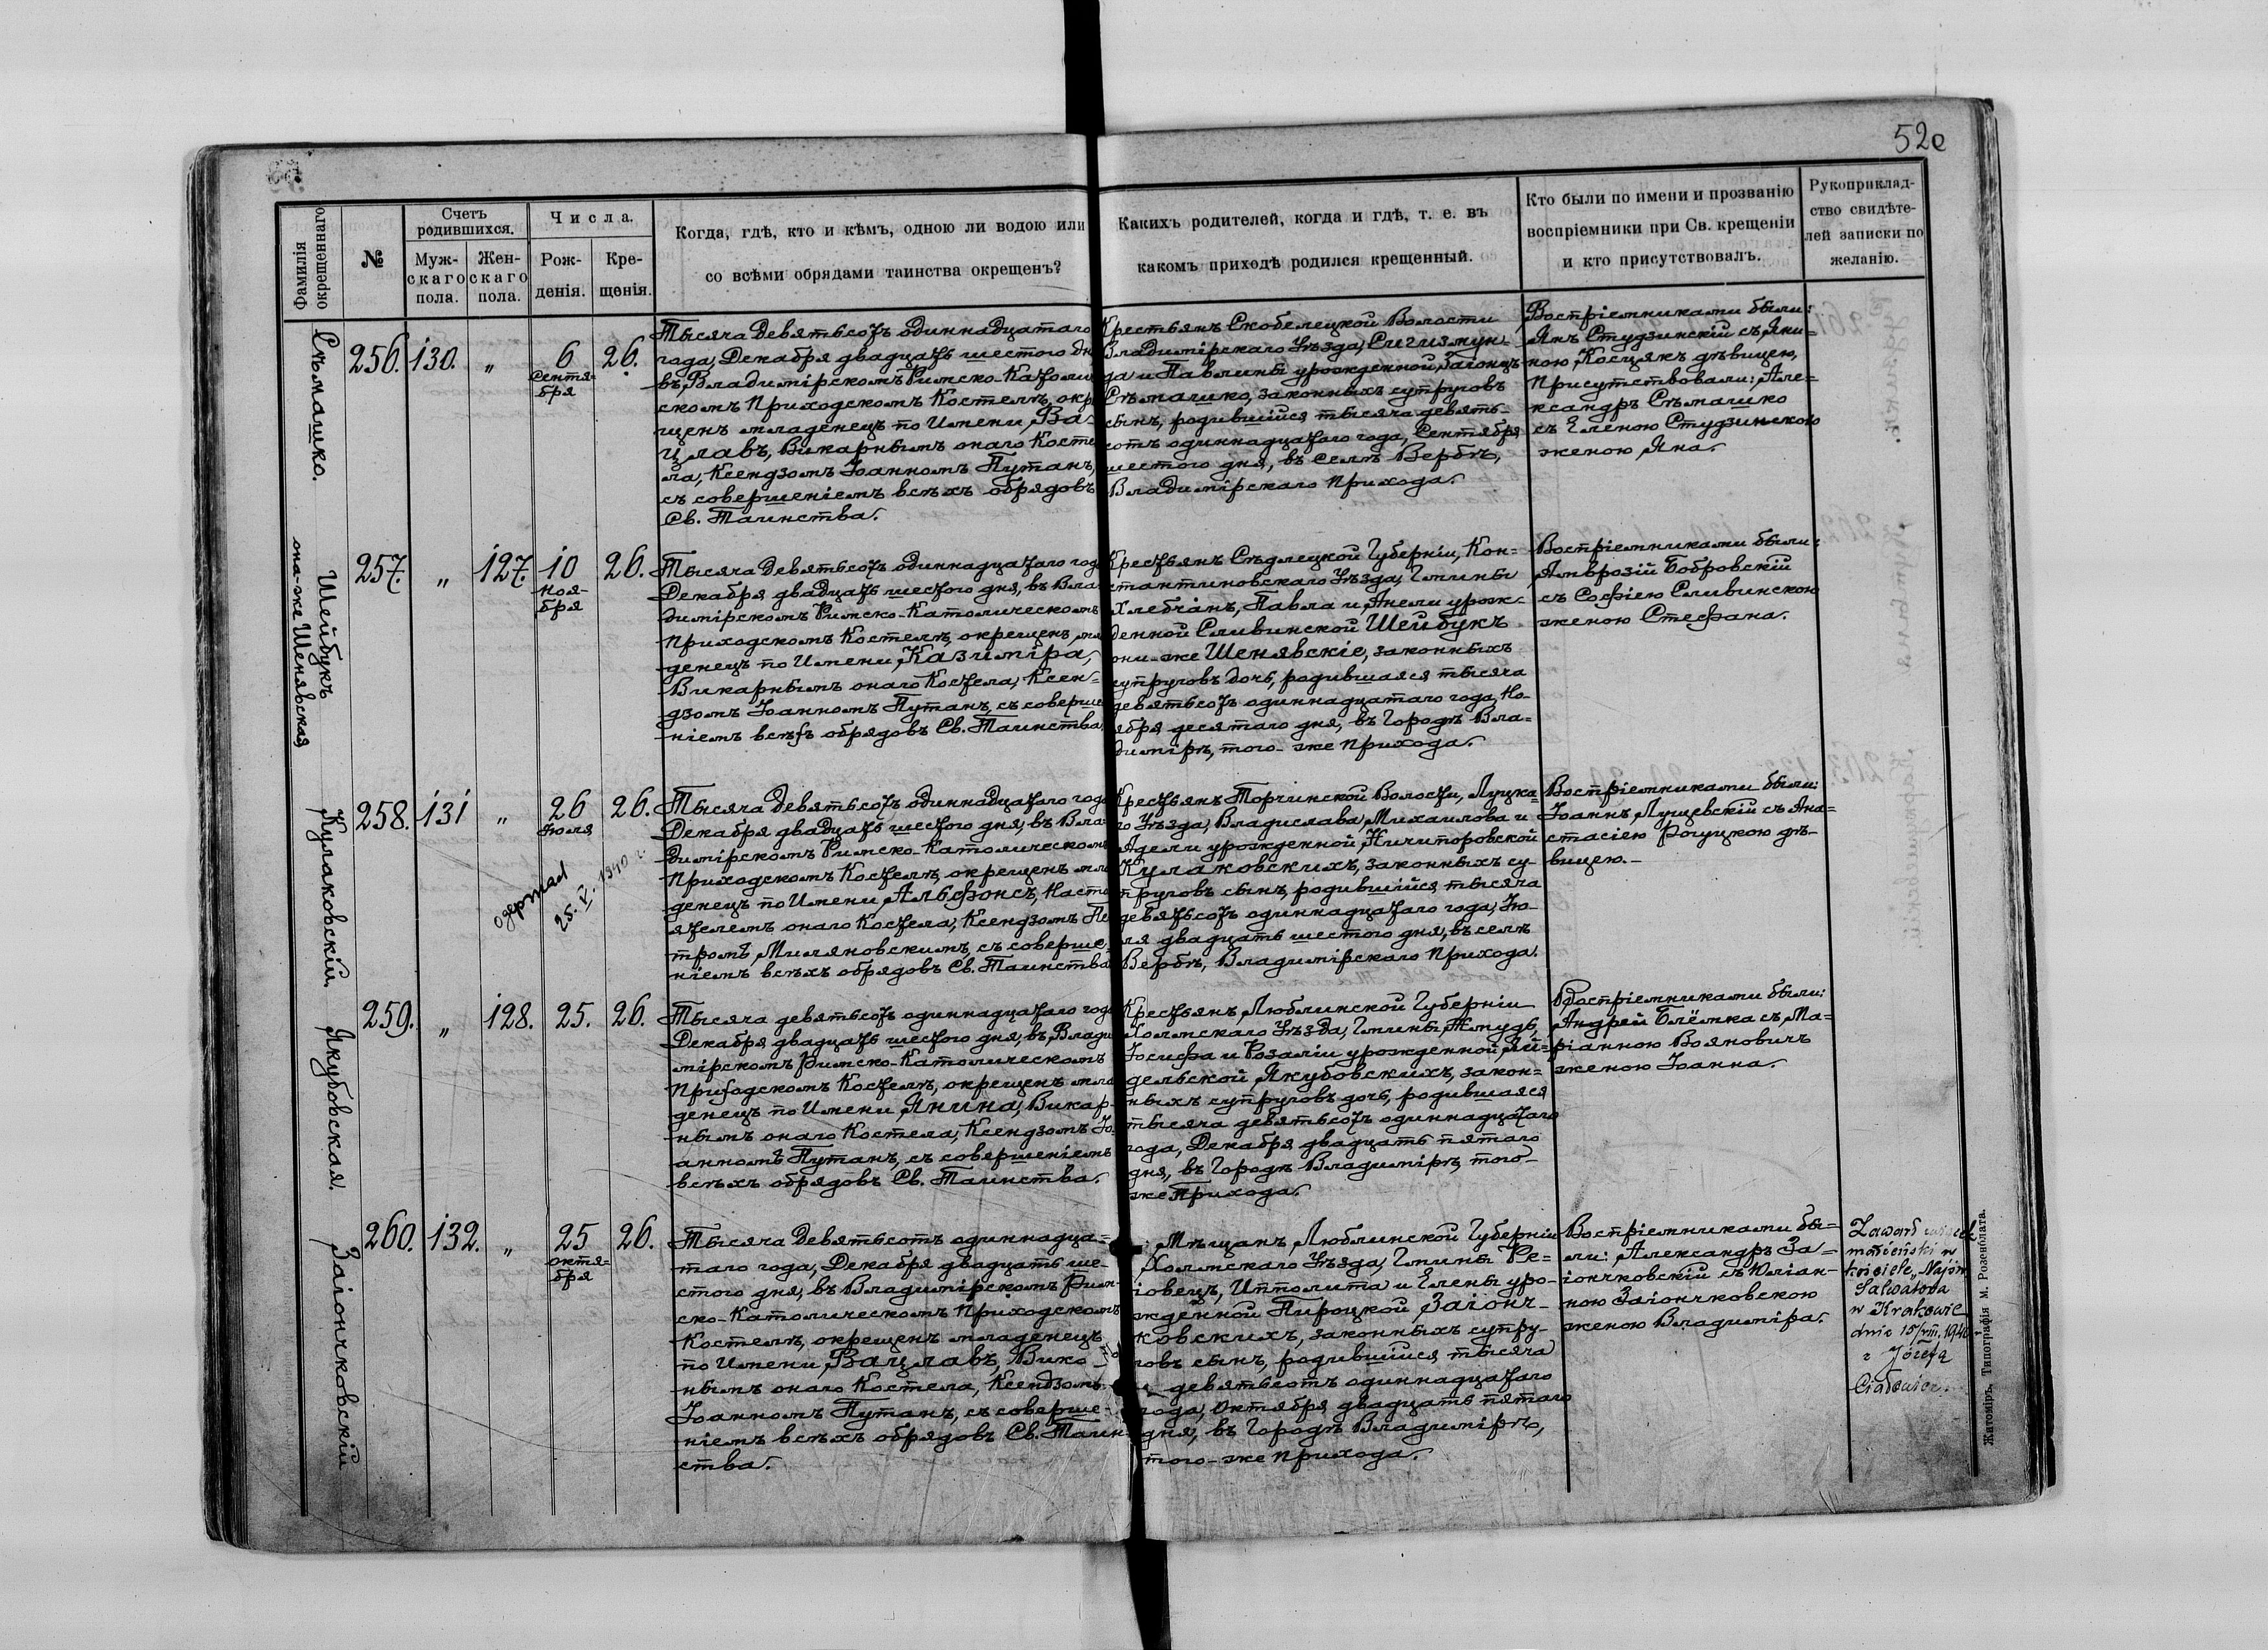 52е
Фамилія окрещеннаго.
№
Счетъ родившихся.
Муж-
скаго
пола.
Жен-
скаго
пола.
Числа.
Рож-
денія.
Кре-
щенія.
Когда, гдѣ, кто и кѣмъ, одною ли водою или
со всѣми обрядами таинства окрещенъ?
Какихъ родителей, когда и гдѣ, т. е. въ
какомъ приходѣ родился крещенный.
Кто были по имени и прозванію
воспріемники при Св. крещеніи
и кто присутствовалъ.
Рукоприклад-
ство свидѣте-
лей записки по
желанію.
Съмашко.
256. 130. „ 6 Сентя-
бря 26.
Тысяча девятьсотъ одиннадцатаго
года, Декабря двадцать шестого дн
въ Владимірскомъ Римско-Католи
скомъ Приходскомъ Костелѣ, окр
щенъ младенецъ по Имени Ва-
цлавъ, Викарнымъ онаго Косте
ла, Ксендзомъ Іоанномъ Путанъ,
съ совершеніемъ всѣхъ обрядовъ
Св. Таинства.
Крестьянъ Скобелецкой Волости
Владимірскаго Уѣзда, Сигизмун-
да и Павлины урожденной Заіонцъ
Съмашко, законныхъ супруговъ
сынъ, родившійся тысяча девять-
сотъ одиннадцатаго года, Сентября
шестого дня, въ селѣ Вербѣ,
Владимірскаго Прихода.
Воспріемниками были:
Янъ Студзинскій съ Яни-
ною Косцякъ дѣвицею,
Присутствовали: Але-
ксандръ Съмашко
съ Еленою Студзинскою
женою Яна.
Шейбукъ
она-же Шенявская
257. „ 127. 10 Ноя-
бря 26.
Тысяча девятьсотъ одиннадцатаго год
Декабря двадцать шестого дня, въ Вла
димірскомъ Римско-Католическомъ
Приходскомъ Костелѣ, окрещенъ мла
денецъ по Имени Казиміра,
Викарнымъ онаго Костела, Ксен-
дзомъ Іоанномъ Путанъ, съ соверше
ніемъ всѣхъ обрядовъ Св. Таинства.
Крестьянъ Сѣдлецкой Губерніи, Кон-
стантиновскаго Уѣзда, Гмины
Хлебчанъ, Павла и Анели урож-
денной Сливинской Шейбукъ
они-же Шенявскіе, законныхъ
супруговъ дочь, родившаяся тысяча
девятьсотъ одиннадцатаго года, Но-
ября десятаго дня, въ Городѣ Вла-
димірѣ, того-же Прихода.
Воспріемниками были:
Амврозій Бобровскій
съ Софіею Сливинскою
женою Стефана.
Кулаковскій.
258. 131 „ 26 Іюля 26.
одержал
25. V. 1940 г.
Тысяча девятьсотъ одиннадцатаго год
Декабря двадцать шестого дня, въ Вла
димірскомъ Римско-Католическомъ
Приходскомъ Костелѣ, окрещенъ мла
денецъ по Имени Альфонсъ, Насто
ятелемъ онаго Костела, Ксендзомъ Пе
тромъ Миляновскимъ, съ соверше
ніемъ всѣхъ обрядовъ Св. Таинства
Крестьянъ Торчинской Волости, Луцка-
го Уѣзда, Владислава Михаилова и
Адели урожденной Ничипоровской
Кулаковскихъ, законныхъ су-
пруговъ сынъ, родившійся тысяча
девятьсотъ одиннадцатаго года, Ію-
ля двадцать шестого дня, въ селѣ
Вербѣ, Владимірскаго Прихода.
Воспріемниками были:
Іоаннъ Лущевскій съ Ана-
стасіею Рогуцкою дѣ-
вицею.
Якубовская.
259. „ 128. 25. 26.
Тысяча девятьсотъ одиннадцатаго год
Декабря двадцать шестого дня, въ Влади
мірскомъ Римско-Католическомъ
Приходскомъ Костелѣ, окрещенъ мла
денецъ по Имени Янина, Викар-
нымъ онаго Костела, Ксендзомъ Іо-
анномъ Путанъ, съ совершеніемъ
всѣхъ обрядовъ Св. Таинства.
Крестьянъ Люблинской Губерніи
Холмскаго Уѣзда, Гмины Жмудь,
Іосифа и Розаліи урожденной Яй-
дельской Якубовскихъ, закон-
ныхъ супруговъ дочь, родившаяся
тысяча девятьсотъ одиннадцатаго
года, Декабря двадцать пятаго
дня, въ Городѣ Владимірѣ, того-
же Прихода.
Воспріемниками были:
Андрей Блёмка съ Ма-
ріанною Вояновичъ
женою Іоанна.
Заіончковскій
260. 132. „ 25 октя-
бря 26.
Тысяча девятьсотъ одиннадца-
таго года, Декабря двадцать ше-
стого дня, въ Владимірскомъ Рим-
ско-Католическомъ Приходскомъ
Костелѣ, окрещенъ младенецъ
по Имени Вацлавъ, Вика
нымъ онаго Костела, Ксендзомъ
Іоанномъ Путанъ, съ соверше-
ніемъ всѣхъ обрядовъ Св. Таин-
ства.
Мѣщанъ Люблинской Губерніи
Холмскаго Уѣзда, Гмины Ре-
іовецъ, Ипполита и Елены уро-
жденной Пироцкой Заіонч-
ковскихъ, законныхъ супру-
говъ сынъ, родившійся тысяча
девятьсотъ одиннадцатаго
года, Октября двадцать пятаго
дня, въ Городѣ Владимірѣ,
того-же Прихода.
Воспріемниками бы-
ли: Александръ За-
іончковскій съ Юліан-
ною Заіончковскою
женою Владиміра.
Zawarł związek
małżeński w
kościele „Najśw.
Salwatora
w Krakowie
dnia 15/VIII. 1940
z Józefą
Житоміръ, Типографія М. Розенблата.